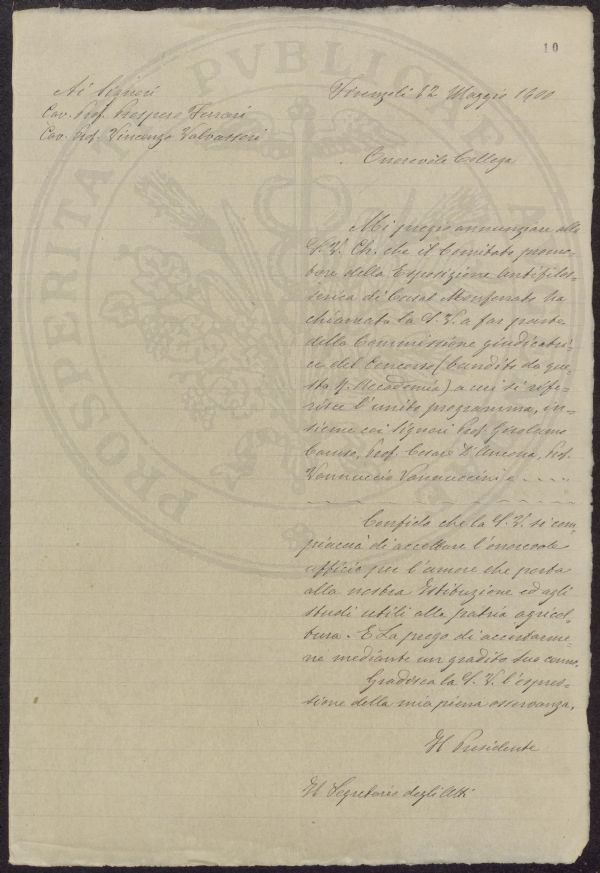 10
Ai Signori
Cav. Prof. Prospero Ferrari
Cav. Prof. Vincenzo Valvassori
Firenze li 12 Maggio 1900
Onorevole Collega
Mi pregio annunziare alla
S. V. Ch. che il Comitato promo-
tore della Esposizione Antifilos-
serica di Casal Monferrato ha
chiamato la S. V. a far parte
della Commissione giudicatri-
ce del Concorso (bandito da que-
sta R. Accademia) a cui si rife-
risce l'unito programma, in-
sieme coi Signori Prof. Girolamo
Caruso, Prof. Cesare D'Ancona, Prof.
Vannuccio Vannuccini e ....
Confido che la S. V. si com-
piacerà di accettare l'onorevole
ufficio per l'amore che porta
alla nostra Istituzione ed agli
studi utili alla patria agricol-
tura. E La prego di accertarme-
ne mediante un gradito suo cenno.
Gradisca la S. V. l'espres-
sione della mia piena osservanza.
Il Presidente
Il Segretario degli Atti
PROSPERITA
PVBLICA